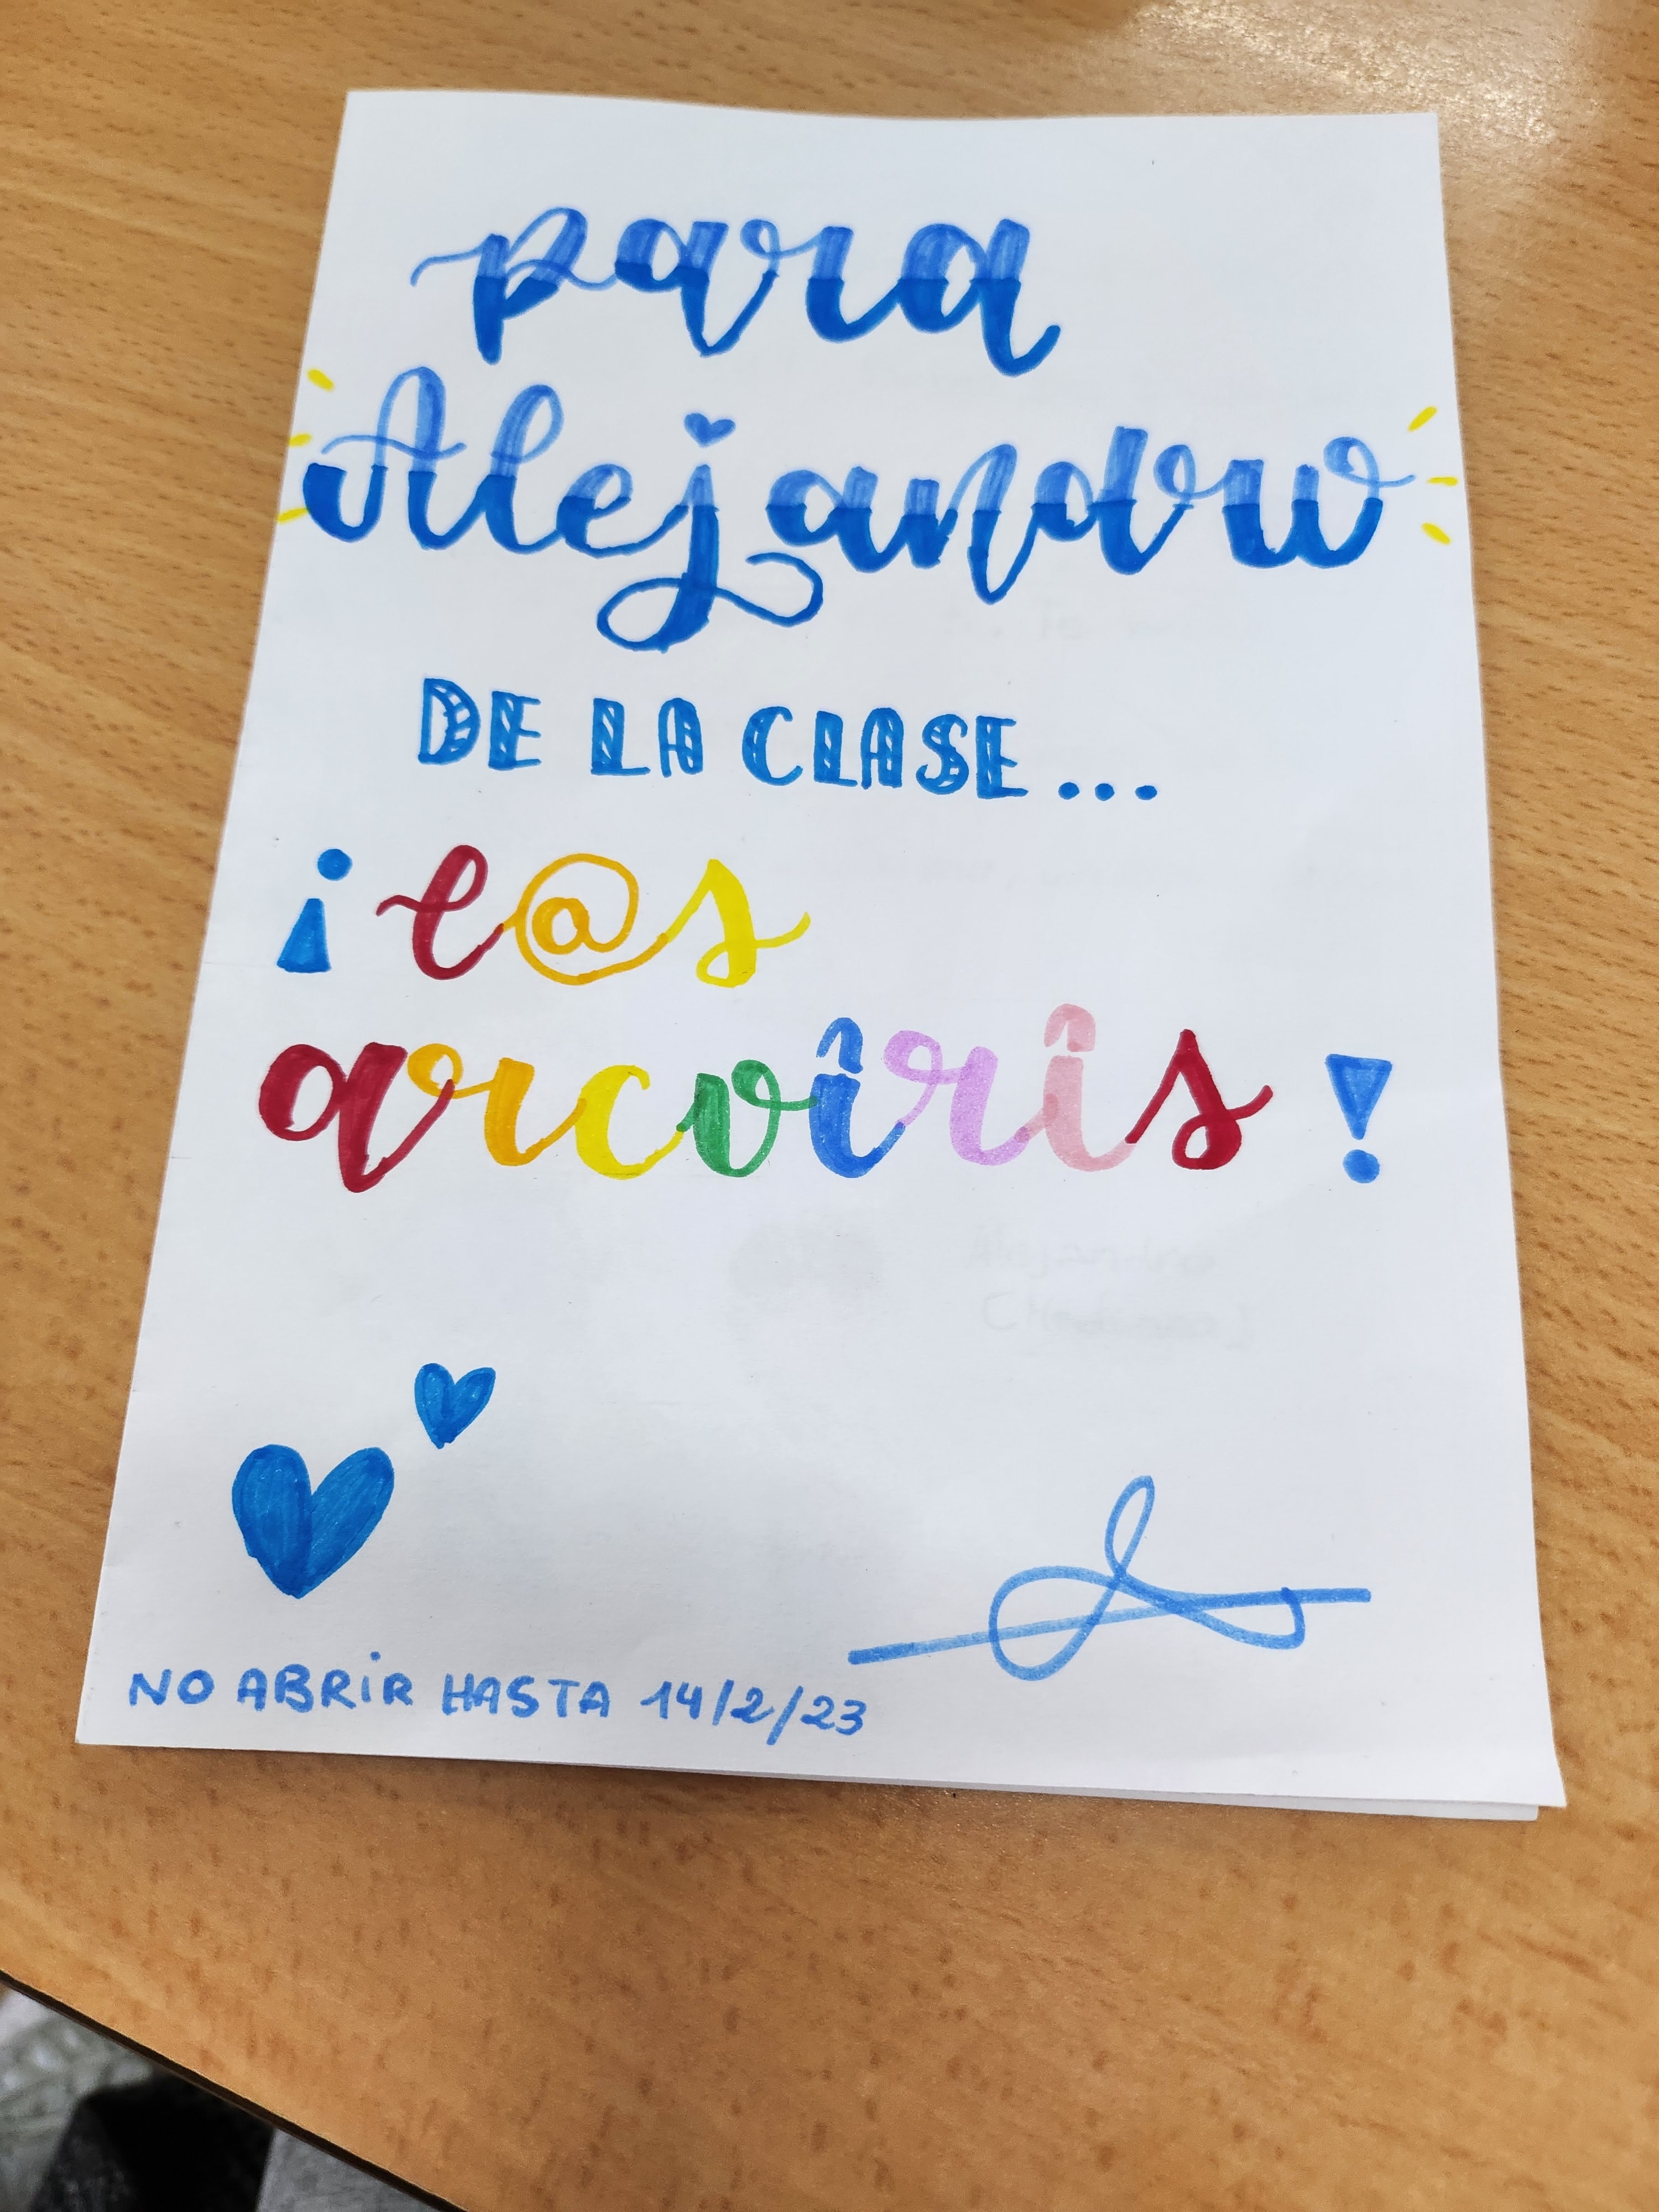 para
Alejandro
DE LA CLASE...
¡l@s
arcoîrîs!
NO ABRIR HASTA 14/2/23